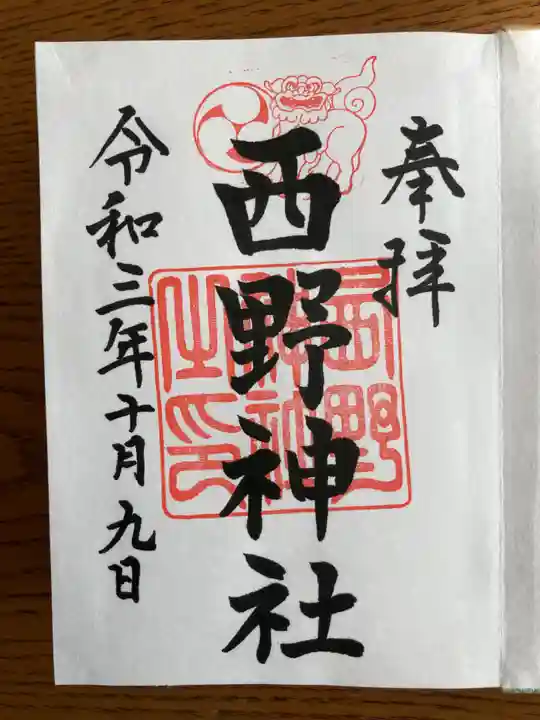 奉拝
西野神社
西野
神社
之印
令和三年十月九日